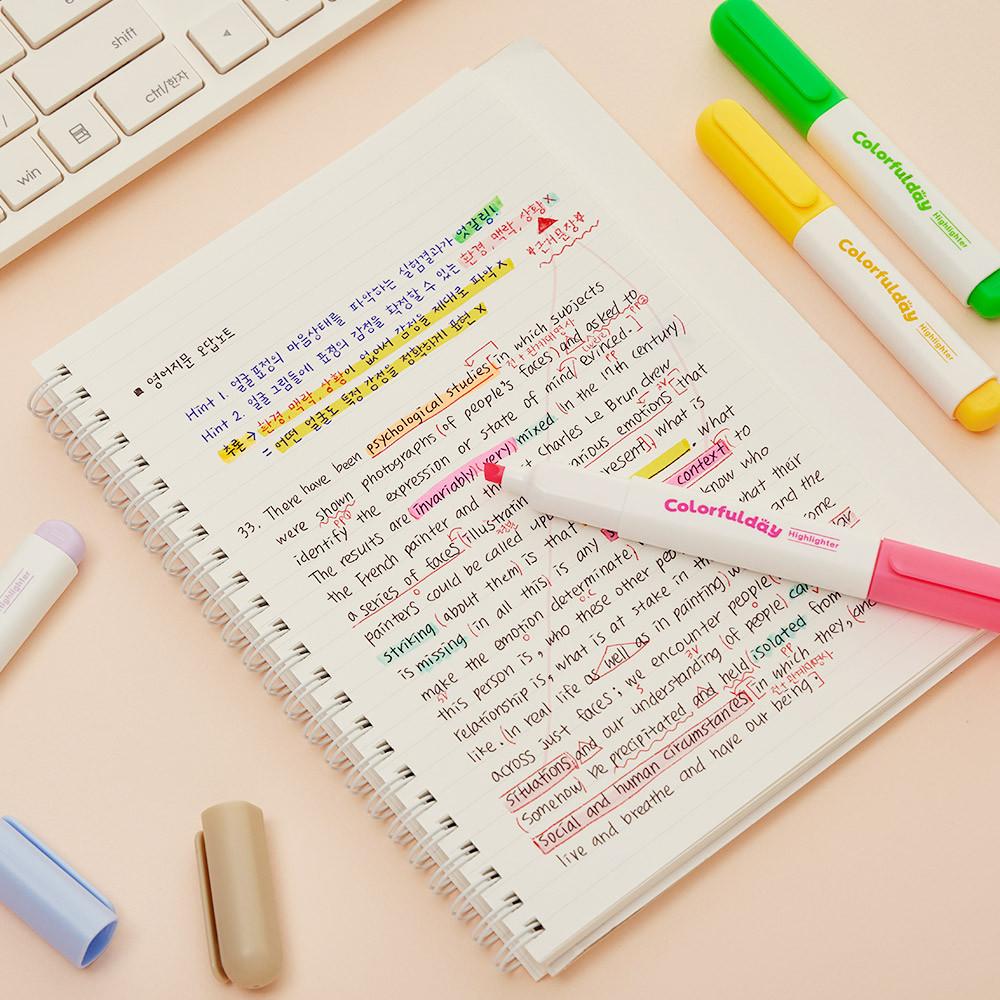 shift
ctrl/한자
win
■ 영어지문 오답노트
Hint 1. 얼굴 표정의 마음상태를 파악하는 실험결과가 엇갈림!
Hint 2. 얼굴 그림들에 표정의 감정을 확정할 수 있는 환경, 맥락, 상황 X
추론 → 환경, 맥락, 상황이 없어서 감정을 제대로 파악 X
= 어떤 얼굴도 특정 감정을 정확하게 표현 X
*근거문장*
33. There have been psychological studies [in which subjects
전+관계대명사
were shown photographs (of people's faces) and asked to
PPO
identify the expression or state of mind evinced.]
PP
The results are invariably (very) mixed. (In the 17th century)
French painter and th Charles Le Brun drew
a series of faces [illustratin arious emotions [that
painters could be called up resent] what is
striking (about them) is that what
is missing (in all this) is any context (to
make the emotion determinate, know who
this person is, who these other pe what their
relationship is, what is at stake in the and the
like. (In real life as well as in painting) w come
across just faces; we encounter people ca
situations and our understanding (of people)
(Somehow) be precipitated and held (isolated from
PP
social and human circumstances [in which they, (and
전+관계대명사
live and breathe and have our being.]
Colorfulday Highlighter
Colorfulday Highlighter
Colorfulday Highlighter
Highlighter